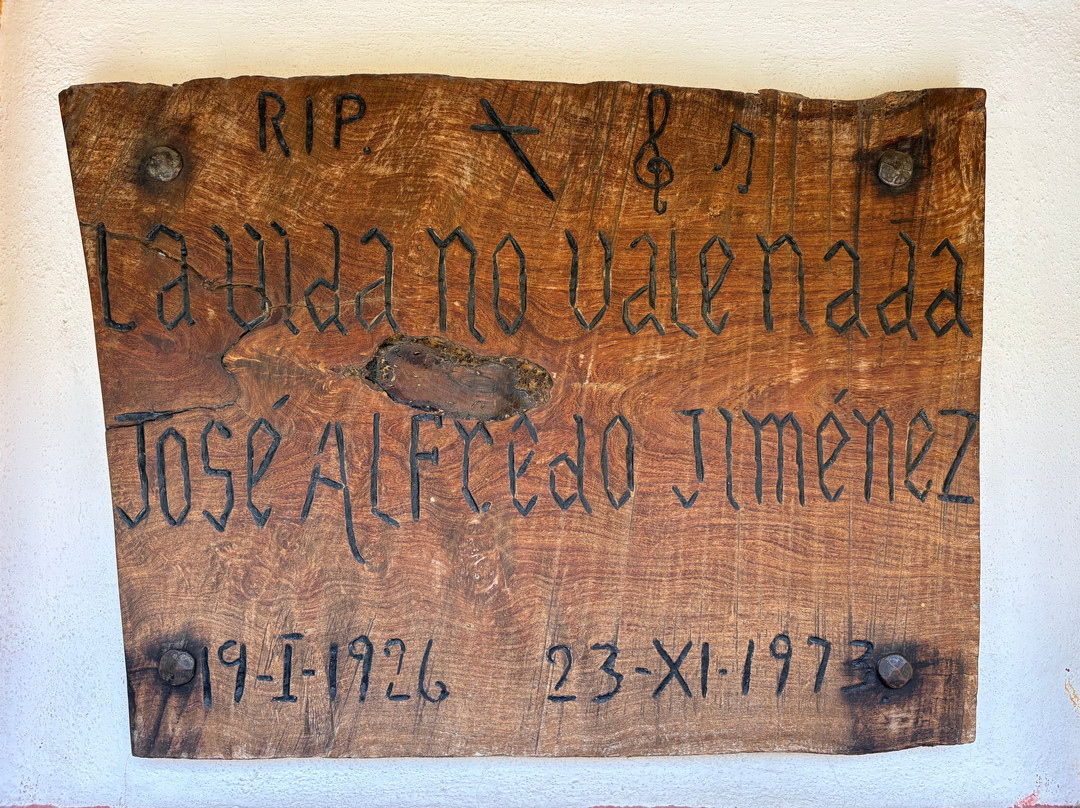 RIP.
La vida no vale nada
José Alfredo Jiménez
19-I-1926 23-XI-1973